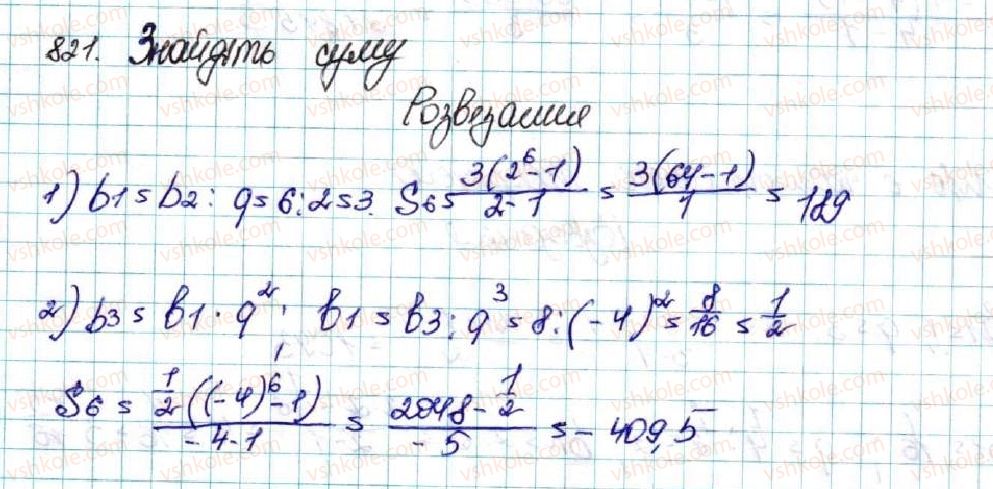 821. Знайдіть суму
Розвезание
1) b1 = b2 : q = 6 : 2 = 3. S6 = 3(2^6 - 1)/(2 - 1) = 3(64 - 1)/1 = 189
2) b3 = b1 · q^2 ; b1 = b3 : q^3 = 8 : (-4)^2 = 8/16 = 1/2
S6 = 1/2((-4)^6 - 1)/(-4 - 1) = (2048 - 1/2)/(-5) = -409,5